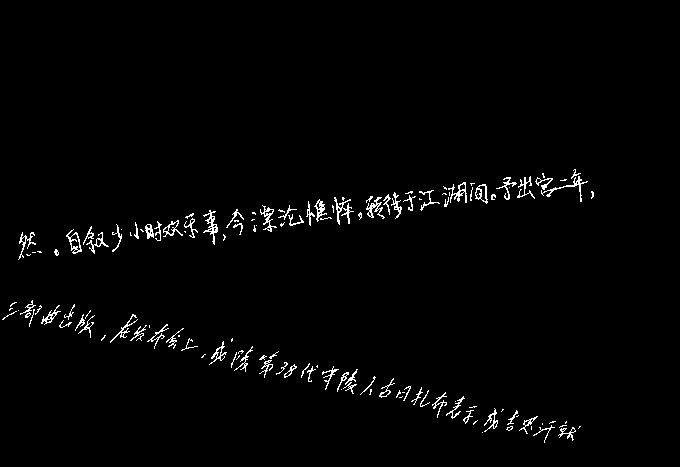 然。自叙少小时欢乐事,今漂沦憔悴,转徙于江湖间。予出官二年,
三部曲出版,在发布会上,成陵第38代守陵人古日扎布表示,成吉思汗就